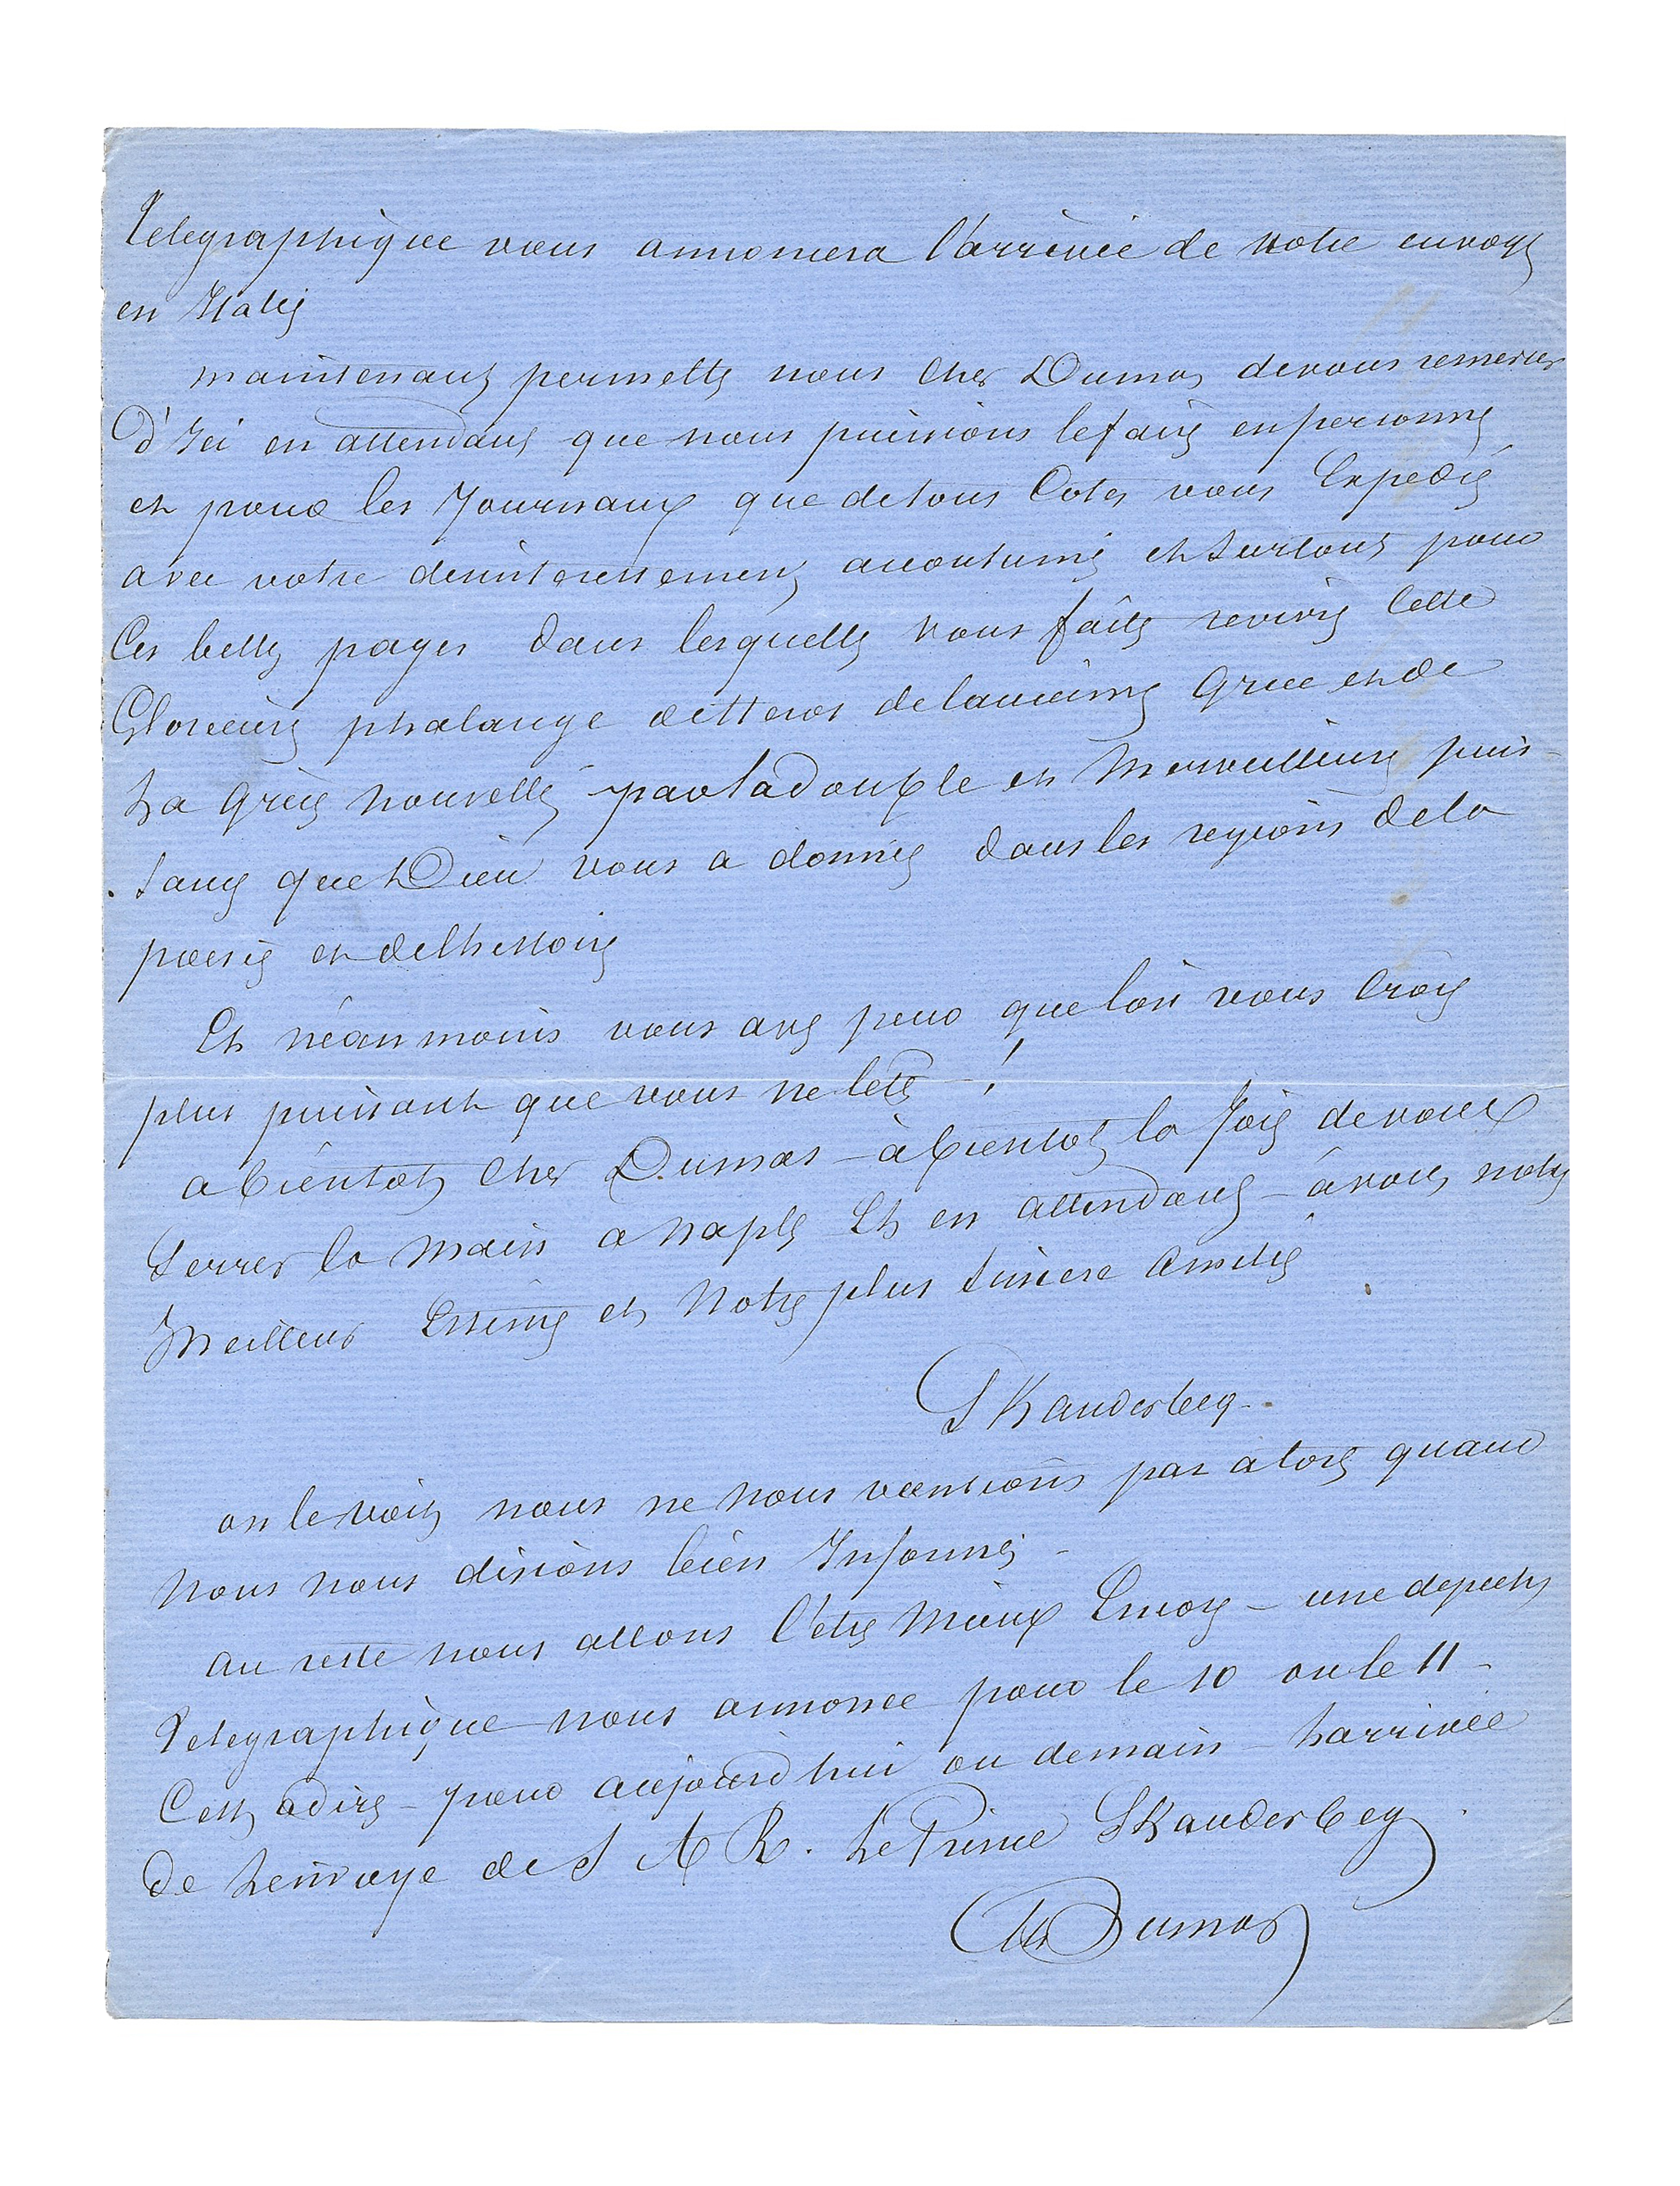 Telegraphique vous annoncera l'arrivée de notre envoyé
en Italie
maintenant permettez nous cher Dumas de vous remercier
D'Ici en attendant que nous puissions le faire en personne
et pour les Journaux que de tous Cotés vous Expediez
avec votre desinteressement accoutumé et surtout pour
Ces belles pages dans lesquelles vous faites revivre Cette
Glorieuse phalange de Heros de lancienne Grece et de
La Grece nouvelle par la double et Merveilleuse puis-
sance que Dieu vous a donnée dans les regions de la
poesie et de lhistoire
Et néanmoins vous avez peur que lon vous Croie
plus puissant que vous ne lete !
a bientot cher Dumas - à bientot la Joie de vous
Serrer la main a Naples Et en attendant - à vous notre
Meilleur Estime et Notre plus sincere Amitié
Skanderbeg -
on le voit nous ne nous vantions pas a tort quand
Nous nous disions bien Informé -
Au reste nous allons l'etre Mieux Encore - une depeche
Telegraphique nous annonce pour le 10 ou le 11 -
Cest a dire - pour aujourdhui ou demain - Larrivée
De Lenvoye de S A R. Le Prince Skanderbeg
Alex Dumas